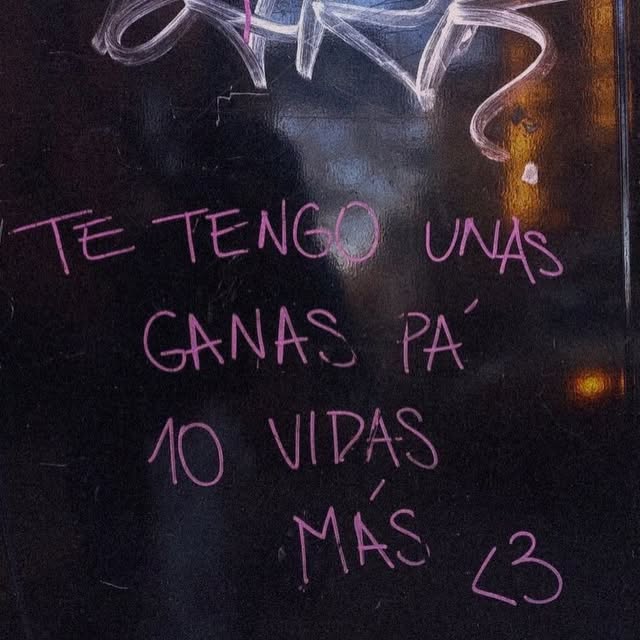 TE TENGO UNAS
GANAS PÁ
10 VIDAS
MÁS <3